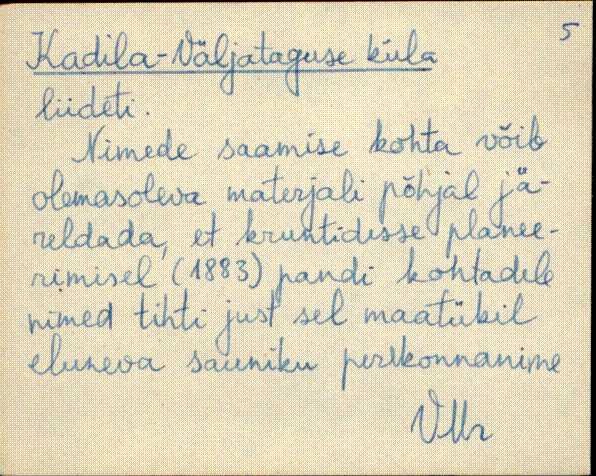 5
Kadila-Väljataguse küla
liideti.
Nimede saamise kohta võib
olemasoleva materjali põhjal jä-
reldada, et kruntidesse planee-
rimisel (1883) pandi kohtadele
nimed tihti just sel maatükil
eluneva sauniku perekonnanime